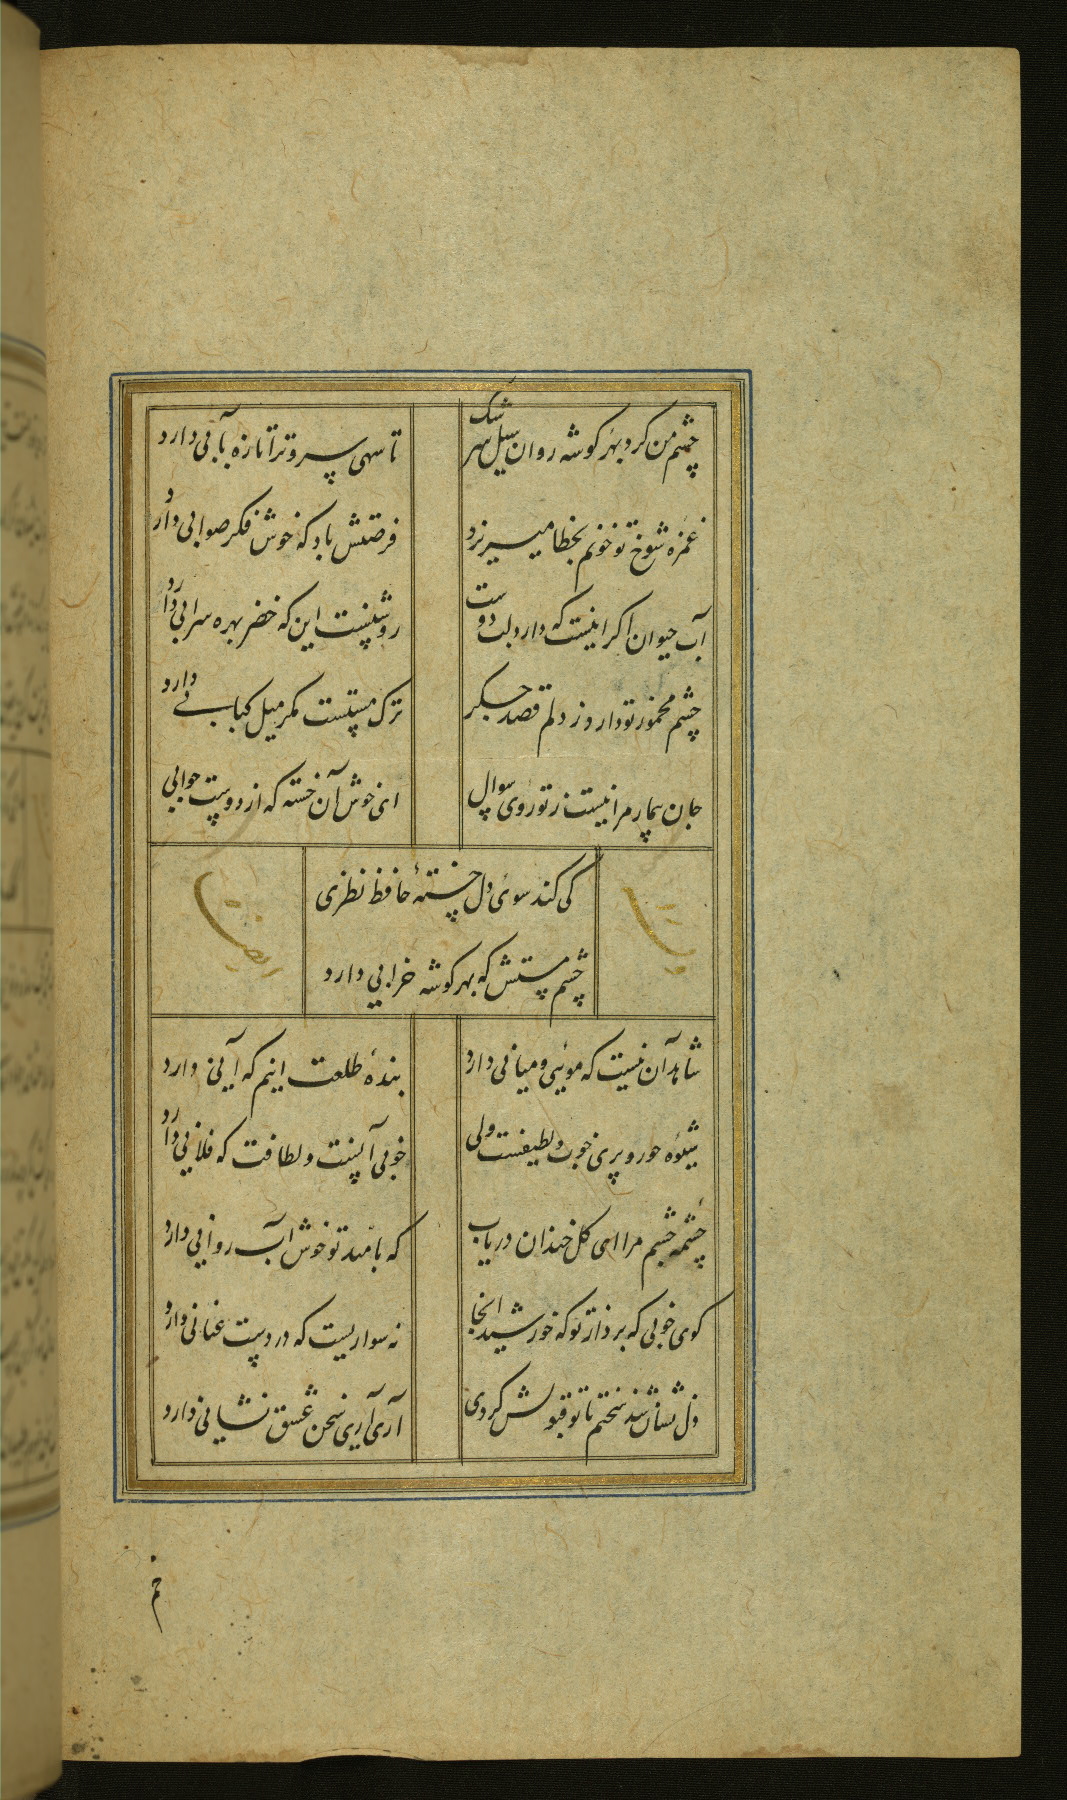 چشم من کرد بهر کوشه روان سیل سرشک
تا سهی سرو ترا تازه بآبی دارد
غمزه شوخ تو خونم بخطا میریزد
فرصتش باد که خوش فکر صوابی دارد
آب حیوان اکر اینست که دارد لب دوست
روشنست این که خضر بهره سرابی دارد
چشم مخمور تو دارد ز دلم قصد جگر
ترک مستست مکر میل کبابی دارد
جان بیمار مرا نیست ز تو روی سوال
ای خوش آن خسته که از دوست جوابی
کی کند سوی دل خستۀ حافظ نظری
چشم مستش که بهر کوشه خرابی دارد
شاهد آن نیست که مویی و میانی دارد
بندۀ طلعت اینم که آنی دارد
شیوۀ حور و پری خوب و لطیفست ولی
خوبی آنست و لطافت که فلانی دارد
چشمۀ چشم مرا ای کل خندان دریاب
که بامید تو خوش آب روانی دارد
کوی خوبی که برد از تو که خورشید انجا
نه سواریست که در دست عنانی دارد
دل نشان شد سخنم تا تو قبولش کردی
آری آری سخن عشق نشانی دارد
خم